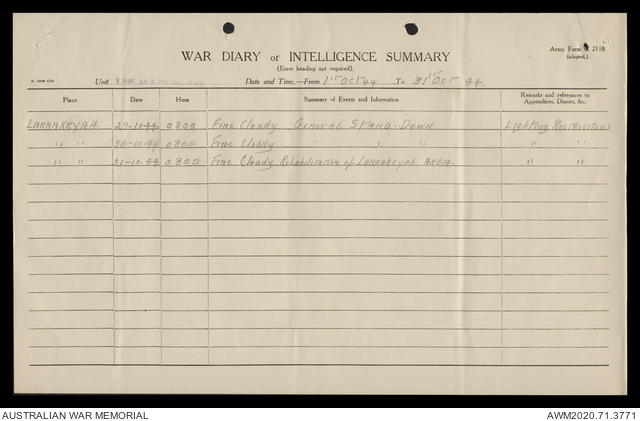 WAR DIARY or INTELLIGENCE SUMMARY
Army Form 2118
(Erase heading not required).
(adapted.)
Unit
Date and Time.—From 1st Oct 44 To 31st Oct 44.
Place Date Hour Summary of Events and Information Remarks and references to Appendices, Diaries, &c.
LARRAKEYAH 29-10-44 0800 Fine Cloudy General Stand-Down Lighting Restrictions
" " 30-10-44 0800 Fine Cloudy " " " " "
" " 31-10-44 0800 Fine Cloudy Rehabilitation of LARRAKEYAH AREA. " "
AUSTRALIAN WAR MEMORIAL
AWM2020.71.3771